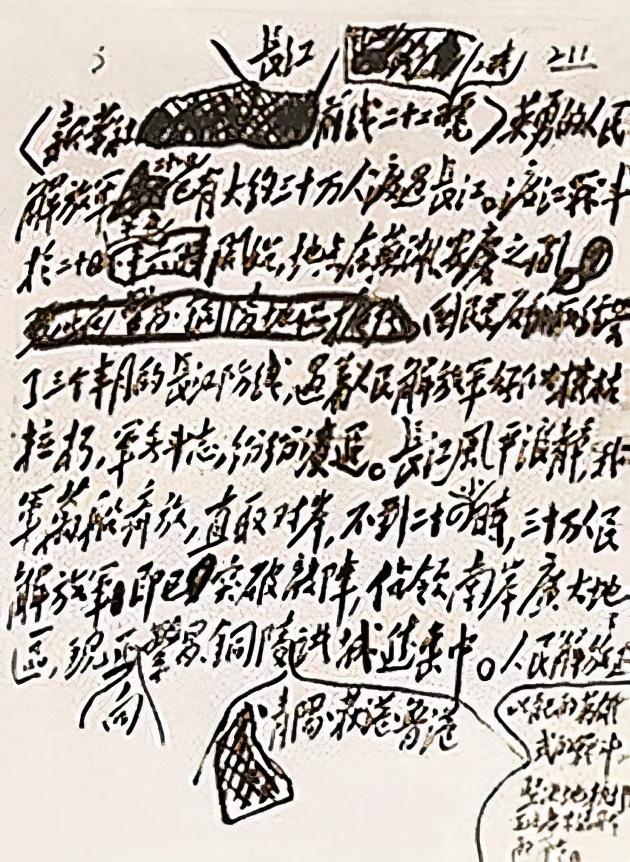 5 長江 211
(新華社 前线二十二 電)英勇的人民
解放軍 二十一日 已有大約三十万人渡过長江。渡江战斗
於二十日午夜開始,地点在蕪湖安慶之间。
国民党反动派经营
了三个半月的長江防线,遇着人民解放軍好似摧枯
拉朽,軍无斗志,纷纷溃退。長江風平浪静,我
軍萬船齐放,直取对岸,不到二十四小時,三十万人民
解放軍即已突破敌陣,佔领南岸廣大地
區,现正向繁昌銅陵诸城進击中。人民解放
青陽荻港鲁港
以自己的英雄
式的战斗,
坚决地执行